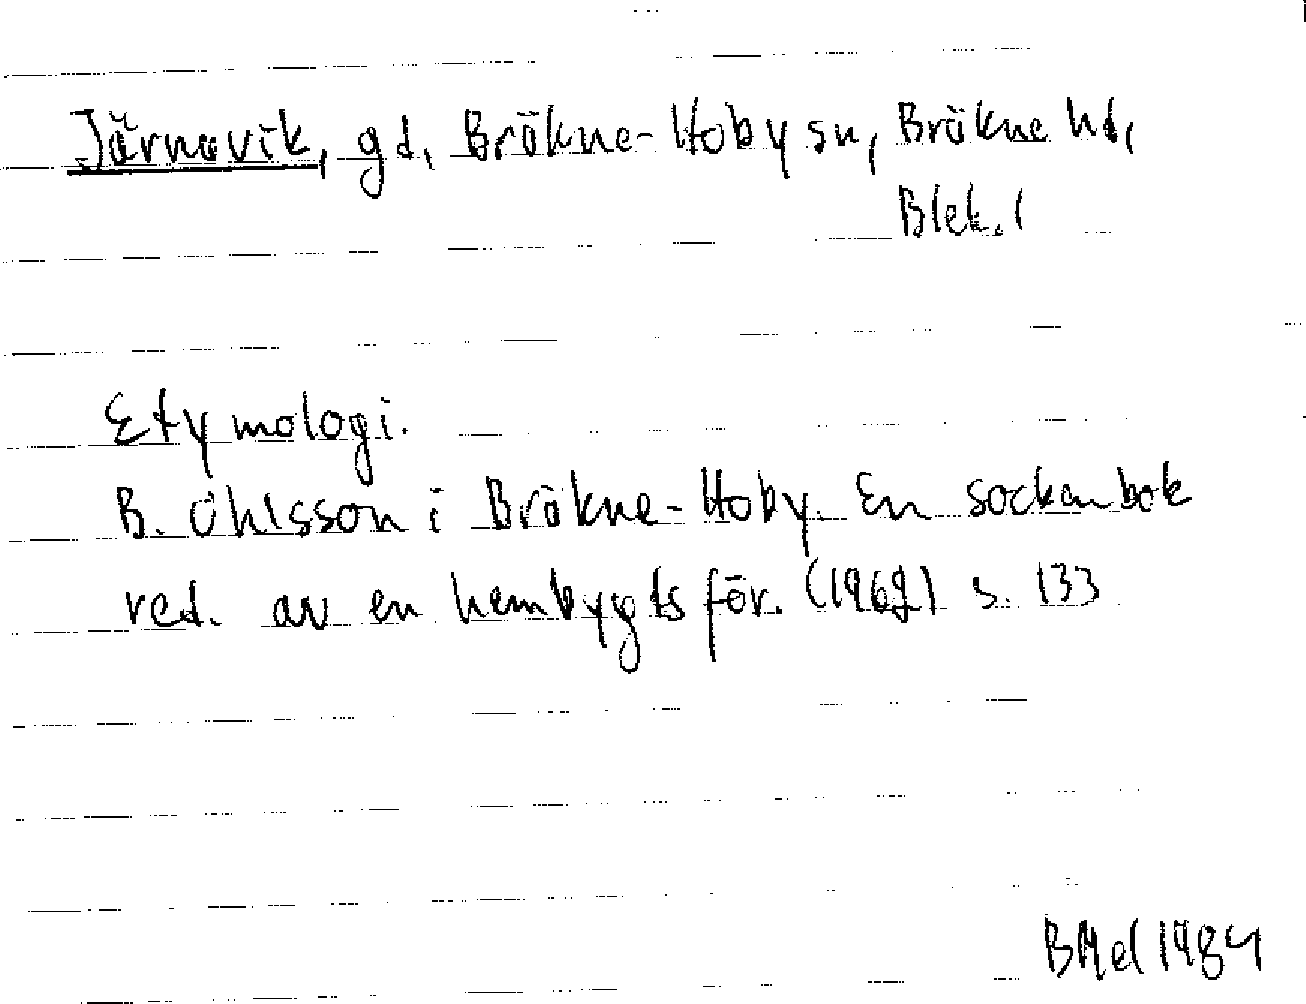 Järnavik, gd, Bräkne-Hoby sn, Bräkne hd,
Blek. l
Etymologi.
B. Ohlsson i Bräkne-Hoby. En sockenbok
red. av en hembygdsför. (1962) s. 133
BMel 1984